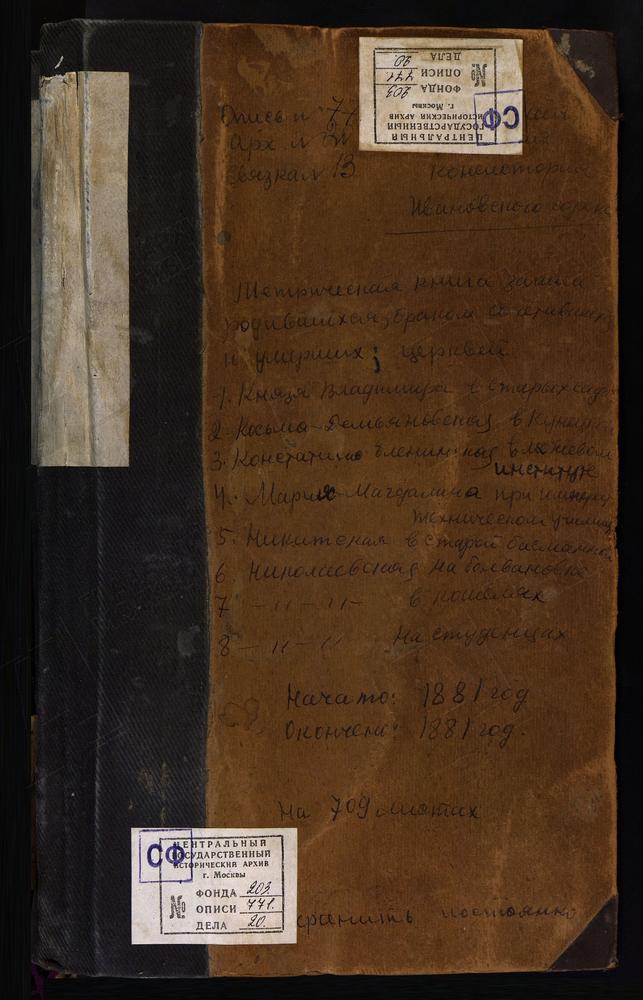 №
ФОНДА 203
ОПИСИ 771
ДЕЛА 20.
СФ
ЦЕНТРАЛЬНЫЙ
ГОСУДАРСТВЕННЫЙ
ИСТОРИЧЕСКИЙ АРХИВ
г. Москвы
Опись №
Арх №
Связка № 13
Консистория
Ивановского
Метрическая книга записи
родившихся, браком
и умерших; церквей
1. Князя Владимира в старых сад
2. Косьма-Демьяновская в
3. в межевом
институте
4. Мария-Магдалина при
техническом училищ
5. Никитская в старой басманной
6. Николаевская на болвановке
7 -"-"- в
8 -"-" На студенцах
Начато: 1881 год
Окончено: 1881 год.
На 709 листах
хранить постоянно
СФ
ЦЕНТРАЛЬНЫЙ
ГОСУДАРСТВЕННЫЙ
ИСТОРИЧЕСКИЙ АРХИВ
г. Москвы
№
ФОНДА 203.
ОПИСИ 771.
ДЕЛА 20.